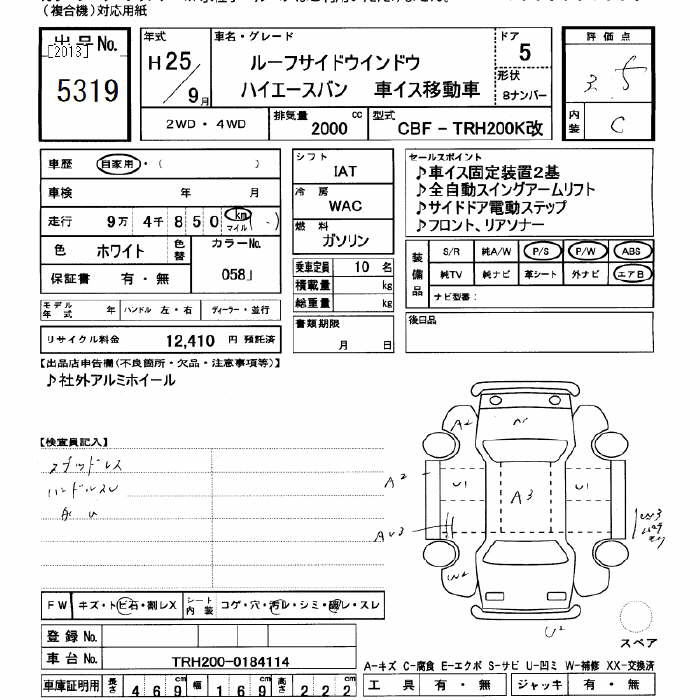 (複合機)対応用紙
出品No.
[2013]
5319
年式
H25/9月
車名・グレード
ルーフサイドウインドウ
ハイエースバン 車イス移動車
ドア
5
形状
8ナンバー
2WD・4WD
排気量 2000 cc
型式 CBF-TRH200K改
評価点
3.5
内装
C
車歴 自家用・( )
車検 年 月
走行 9万4千850 km マイル (-)
色 ホワイト 色替 カラーNo.
保証書 有・無 058」
モデル年式 年 ハンドル 左・右 ディーラー・並行
リサイクル料金 12,410 円 預託済
シフト
IAT
冷房
WAC
燃料
ガソリン
乗車定員 10 名
積載量 kg
総重量 kg
書類期限
月 日
セールスポイント
♪車イス固定装置2基
♪全自動スイングアームリフト
♪サイドドア電動ステップ
♪フロント、リアソナー
装備品
S/R 純A/W P/S P/W ABS
純TV 純ナビ 革シート 外ナビ エアB
ナビ型番:
後日品
【出品店申告欄(不良箇所・欠品・注意事項等)】
♪社外アルミホイール
【検査員記入】
スタッドレス
ハンドルスレ
A2
A2
U1
A3
U1
W2
U2
スペア
FW キズ・トビ石・割レX シート内装 コゲ・穴・汚レ・シミ・破レ・スレ
登録No.
車台No. TRH200-0184114
車庫証明用 長さ 469 幅 169 高さ 222
A-キズ C-腐食 E-エクボ S-サビ U-凹ミ W-補修 XX-交換済
工具 有・無 ジャッキ 有・無